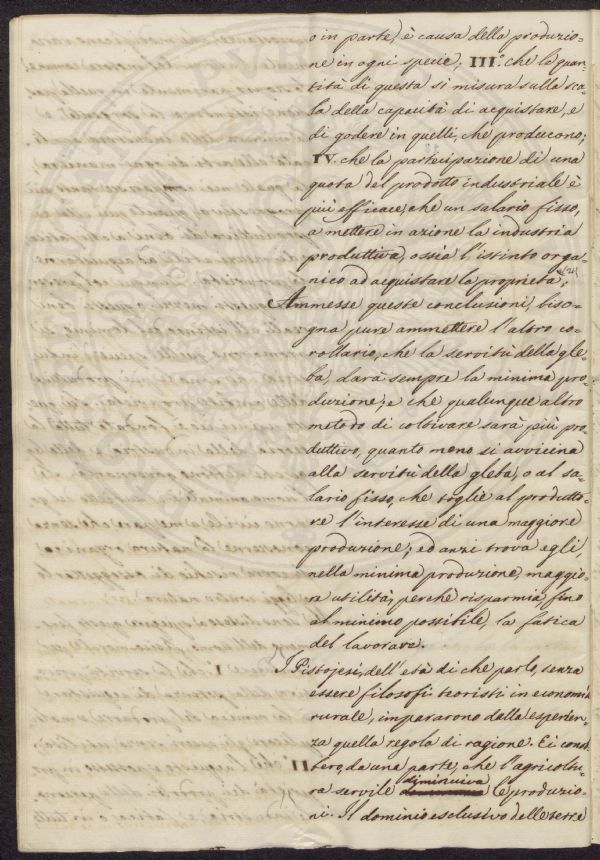 o in parte, è causa della produzio-
ne in ogni specie; III.° che la quan-
tità di questa si misura sulla sca-
la della capacità di acquistare, e
di godere in quelli, che producono;
IV. che la partecipazione di una
quota del prodotto industriale è
più efficace, che un salario fisso,
a mettere in azione la industria
produttiva, ossia l'istinto orga-
nico ad acquistare la proprietà;
Ammesse queste conclusioni, biso-
gna pure ammettere l'altro co-
rollario, che la servitù della gle-
ba, darà sempre la minima pro-
duzione; e che qualunque altro
metodo di coltivare sarà più pro
duttivo, quanto meno si avvicina
alla servitù della gleba, o al sa-
lario fisso, che toglie al produtto-
re l'interesse di una maggiore
produzione; ed anzi trova egli,
nella minima produzione, maggio-
re utilità; perchè risparmia fino
al minimo possibile, la fatica
del lavorare.
I Pistojesi, dell'età di che parlo, senza
essere filosofi teoristi in economia
rurale, impararono dalla esperien-
za quella regola di ragione. Ei conob
bero, da una parte, che l'agricoltu-
ra servile diminuiva le produzio-
ni. Il dominio esclusivo delle terre